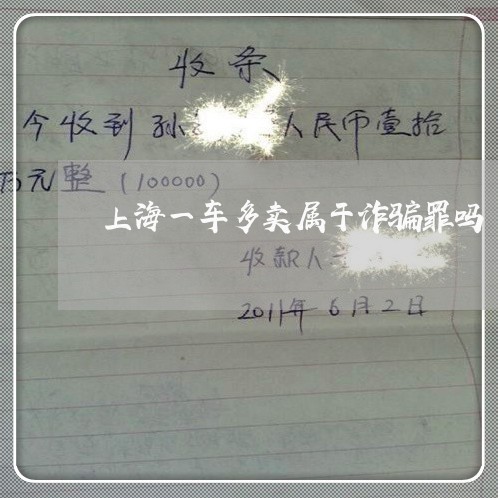 收条
今收到孙 人民币壹拾
万元整(100000)
上海一车多卖属于诈骗罪吗
收款人
2011年6月2日